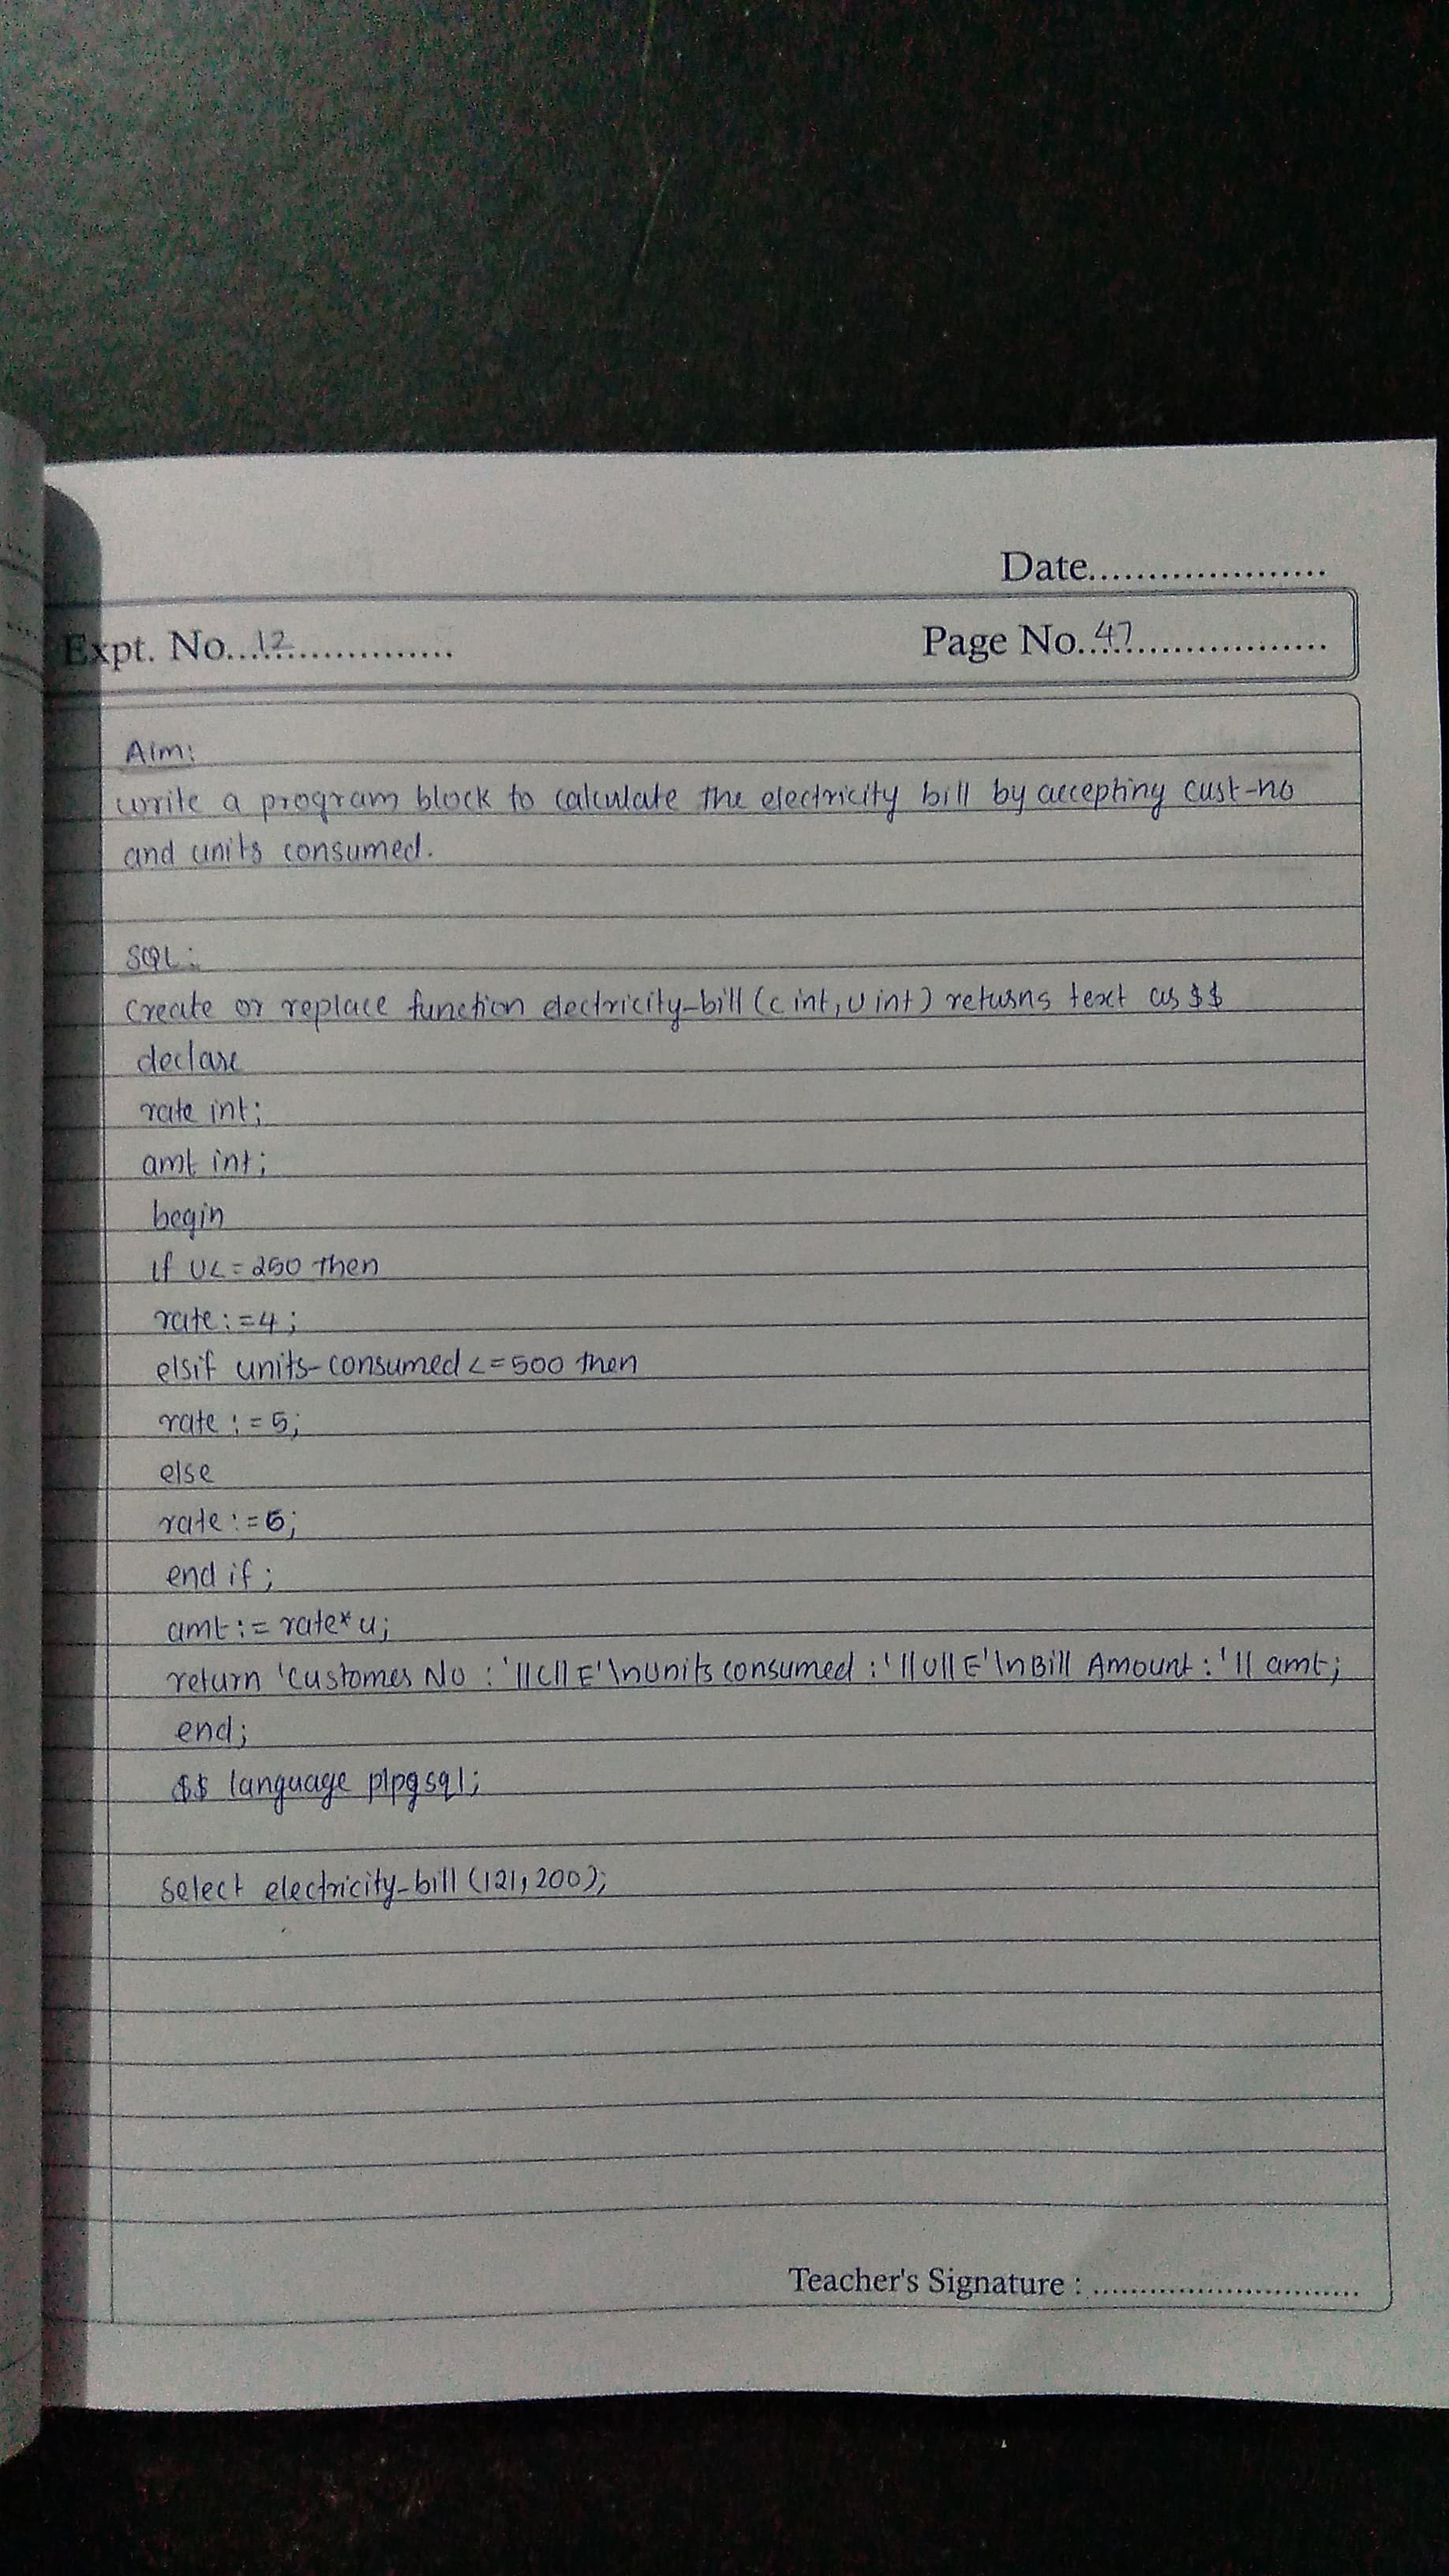 Date....................
Expt. No...12................ Page No.47...................
Aim:
write a program block to calculate the electricity bill by accepting cust-no
and units consumed.
SQL:
create or replace function electricity-bill (c int, u int) returns text as $$
declare
rate int;
amt int;
begin
if u<=250 then
rate:=4;
elsif units-consumed <=500 then
rate:=5;
else
rate:=6;
end if;
amt:= rate*u;
return 'Customer No : '||c|| E'\nUnits consumed : '||u|| E'\nBill Amount : '|| amt;
end;
$$ language plpgsql;
select electricity-bill (121, 200);
Teacher's Signature : ............................